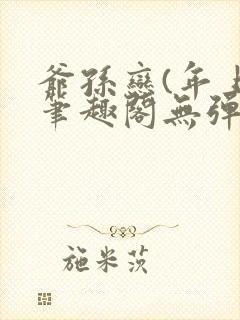 爺孫戀(年上
筆趣閣無彈
施米茨